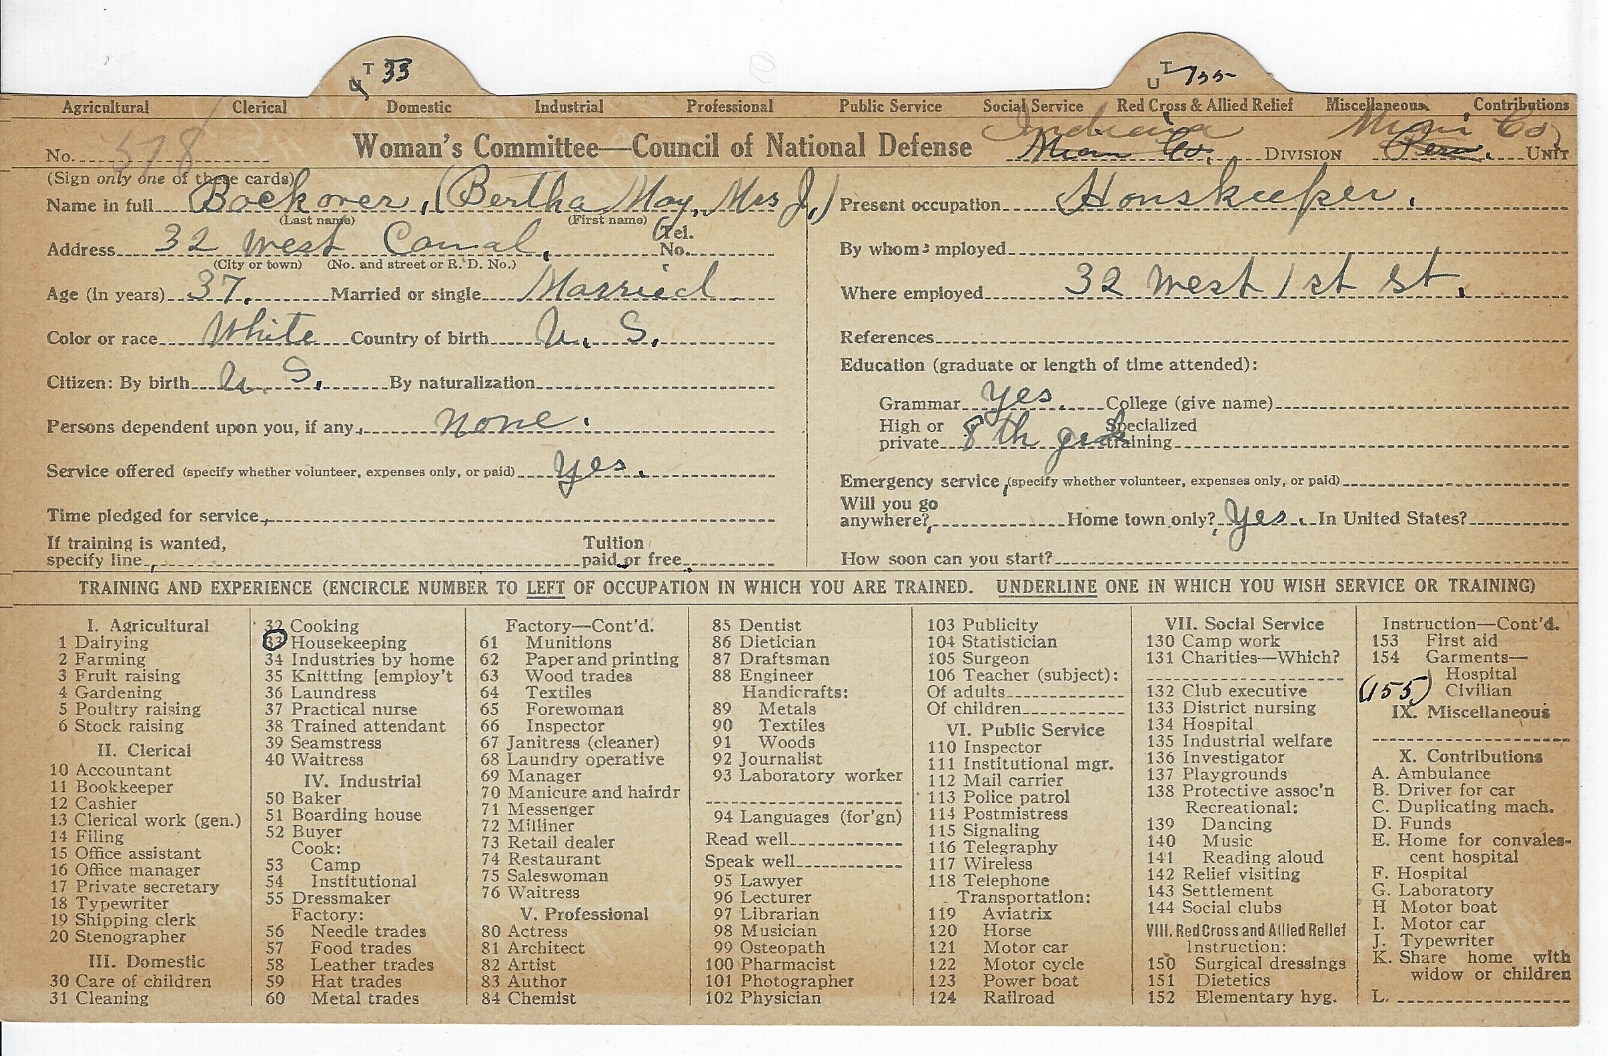 T 33 U
T 155 U
Agricultural Clerical Domestic Industrial Professional Public Service Social Service Red Cross & Allied Relief Miscellaneous Contributions
No. 578 Woman's Committee—Council of National Defense Indiana Miami Co. DIVISION Miami Co. Peru. UNIT
(Sign only one of these cards)
Name in full Bockover, (Bertha May, Mrs J.)
(Last name) (First name)
Address 32 West Canal, Tel. No.
(City or town) (No. and street or R. D. No.)
Age (in years) 37. Married or single Married
Color or race White Country of birth U. S.
Citizen: By birth U. S. By naturalization
Persons dependent upon you, if any, none.
Service offered (specify whether volunteer, expenses only, or paid) Yes.
Time pledged for service,
If training is wanted, specify line, Tuition paid or free
Present occupation Houskeeper.
By whom employed
Where employed 32 West 1st St.
References
Education (graduate or length of time attended):
Grammar Yes. College (give name)
High or private 8th grade Specialized training
Emergency service, (specify whether volunteer, expenses only, or paid)
Will you go anywhere? Home town only? Yes. In United States?
How soon can you start?
TRAINING AND EXPERIENCE (ENCIRCLE NUMBER TO LEFT OF OCCUPATION IN WHICH YOU ARE TRAINED. UNDERLINE ONE IN WHICH YOU WISH SERVICE OR TRAINING)
I. Agricultural
1 Dairying
2 Farming
3 Fruit raising
4 Gardening
5 Poultry raising
6 Stock raising
II. Clerical
10 Accountant
11 Bookkeeper
12 Cashier
13 Clerical work (gen.)
14 Filing
15 Office assistant
16 Office manager
17 Private secretary
18 Typewriter
19 Shipping clerk
20 Stenographer
III. Domestic
30 Care of children
31 Cleaning
32 Cooking
33 Housekeeping
34 Industries by home
35 Knitting [employ't
36 Laundress
37 Practical nurse
38 Trained attendant
39 Seamstress
40 Waitress
IV. Industrial
50 Baker
51 Boarding house
52 Buyer
Cook:
53 Camp
54 Institutional
55 Dressmaker
Factory:
56 Needle trades
57 Food trades
58 Leather trades
59 Hat trades
60 Metal trades
Factory—Cont'd.
61 Munitions
62 Paper and printing
63 Wood trades
64 Textiles
65 Forewoman
66 Inspector
67 Janitress (cleaner)
68 Laundry operative
69 Manager
70 Manicure and hairdr
71 Messenger
72 Milliner
73 Retail dealer
74 Restaurant
75 Saleswoman
76 Waitress
V. Professional
80 Actress
81 Architect
82 Artist
83 Author
84 Chemist
85 Dentist
86 Dietician
87 Draftsman
88 Engineer
Handicrafts:
89 Metals
90 Textiles
91 Woods
92 Journalist
93 Laboratory worker
94 Languages (for'gn)
Read well
Speak well
95 Lawyer
96 Lecturer
97 Librarian
98 Musician
99 Osteopath
100 Pharmacist
101 Photographer
102 Physician
103 Publicity
104 Statistician
105 Surgeon
106 Teacher (subject):
Of adults
Of children
VI. Public Service
110 Inspector
111 Institutional mgr.
112 Mail carrier
113 Police patrol
114 Postmistress
115 Signaling
116 Telegraphy
117 Wireless
118 Telephone
Transportation:
119 Aviatrix
120 Horse
121 Motor car
122 Motor cycle
123 Power boat
124 Railroad
VII. Social Service
130 Camp work
131 Charities—Which?
132 Club executive
133 District nursing
134 Hospital
135 Industrial welfare
136 Investigator
137 Playgrounds
138 Protective assoc'n
Recreational:
139 Dancing
140 Music
141 Reading aloud
142 Relief visiting
143 Settlement
144 Social clubs
VIII. Red Cross and Allied Relief
Instruction:
150 Surgical dressings
151 Dietetics
152 Elementary hyg.
Instruction—Cont'd.
153 First aid
154 Garments—
Hospital
(155) Civilian
IX. Miscellaneous
X. Contributions
A. Ambulance
B. Driver for car
C. Duplicating mach.
D. Funds
E. Home for convales-
cent hospital
F. Hospital
G. Laboratory
H Motor boat
I. Motor car
J. Typewriter
K. Share home with
widow or children
L.